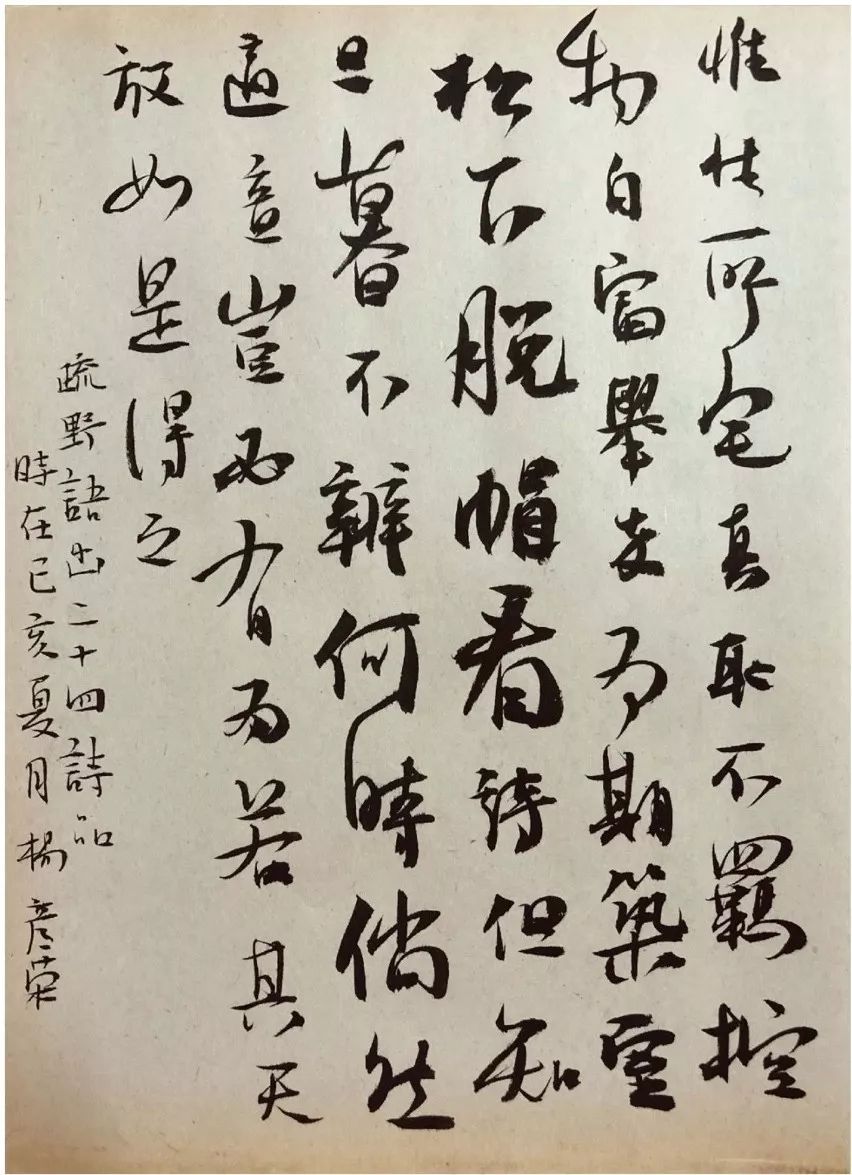 惟性所宅真取不羈控
物自富舉率為期築室
松下脫帽看詩但知
旦暮不辨何時倘然
適意豈必有為若其天
放如是得之
疏野語出二十四詩品
時在己亥夏月楊彦榮